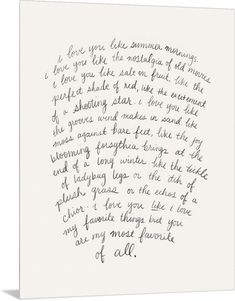 i love you like summer mornings.
i love you like the nostalgia of old movies
i love you like salt on fruit like the
perfect shade of red, like the excitement
of a shooting star. i love you like
the grooves wind makes in sand like
moss against bare feet, like the joy
blooming forsythia brings at the
end of a long winter like the tickle
of ladybug legs or the itch of
plush grass or the echoes of a
chior. i love you like i love
my favorite things but you
are my most favorite
of all.